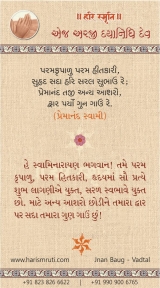 ॥ હરિ સ્મૃતિ ॥
એજ અરજી દયાનિધિ દેવ
પરમકૃપાળુ પરમ હીતકારી,
સુહ્રદ સદા હરિ સરલ સુભાઉ રે;
પ્રેમાનંદ તજી અન્ય આશરો,
દ્વાર પર્યો ગુન ગાઉ રે.
(પ્રેમાનંદ સ્વામી)
હે સ્વામિનારાયણ ભગવાન! તમે પરમ
કૃપાળુ, પરમ હિતકારી, હૃદયમાં સૌ પ્રત્યે
શુભ લાગણીએ યુક્ત, સરળ સ્વભાવે યુક્ત
છો. માટે અન્ય આશરો છોડીને તમારા દ્વાર
પર સદા તમારા ગુણ ગાઉં છું!
www.harismruti.com
Jnan Baug - Vadtal
+91 823 826 6622 | +91 990 900 6765